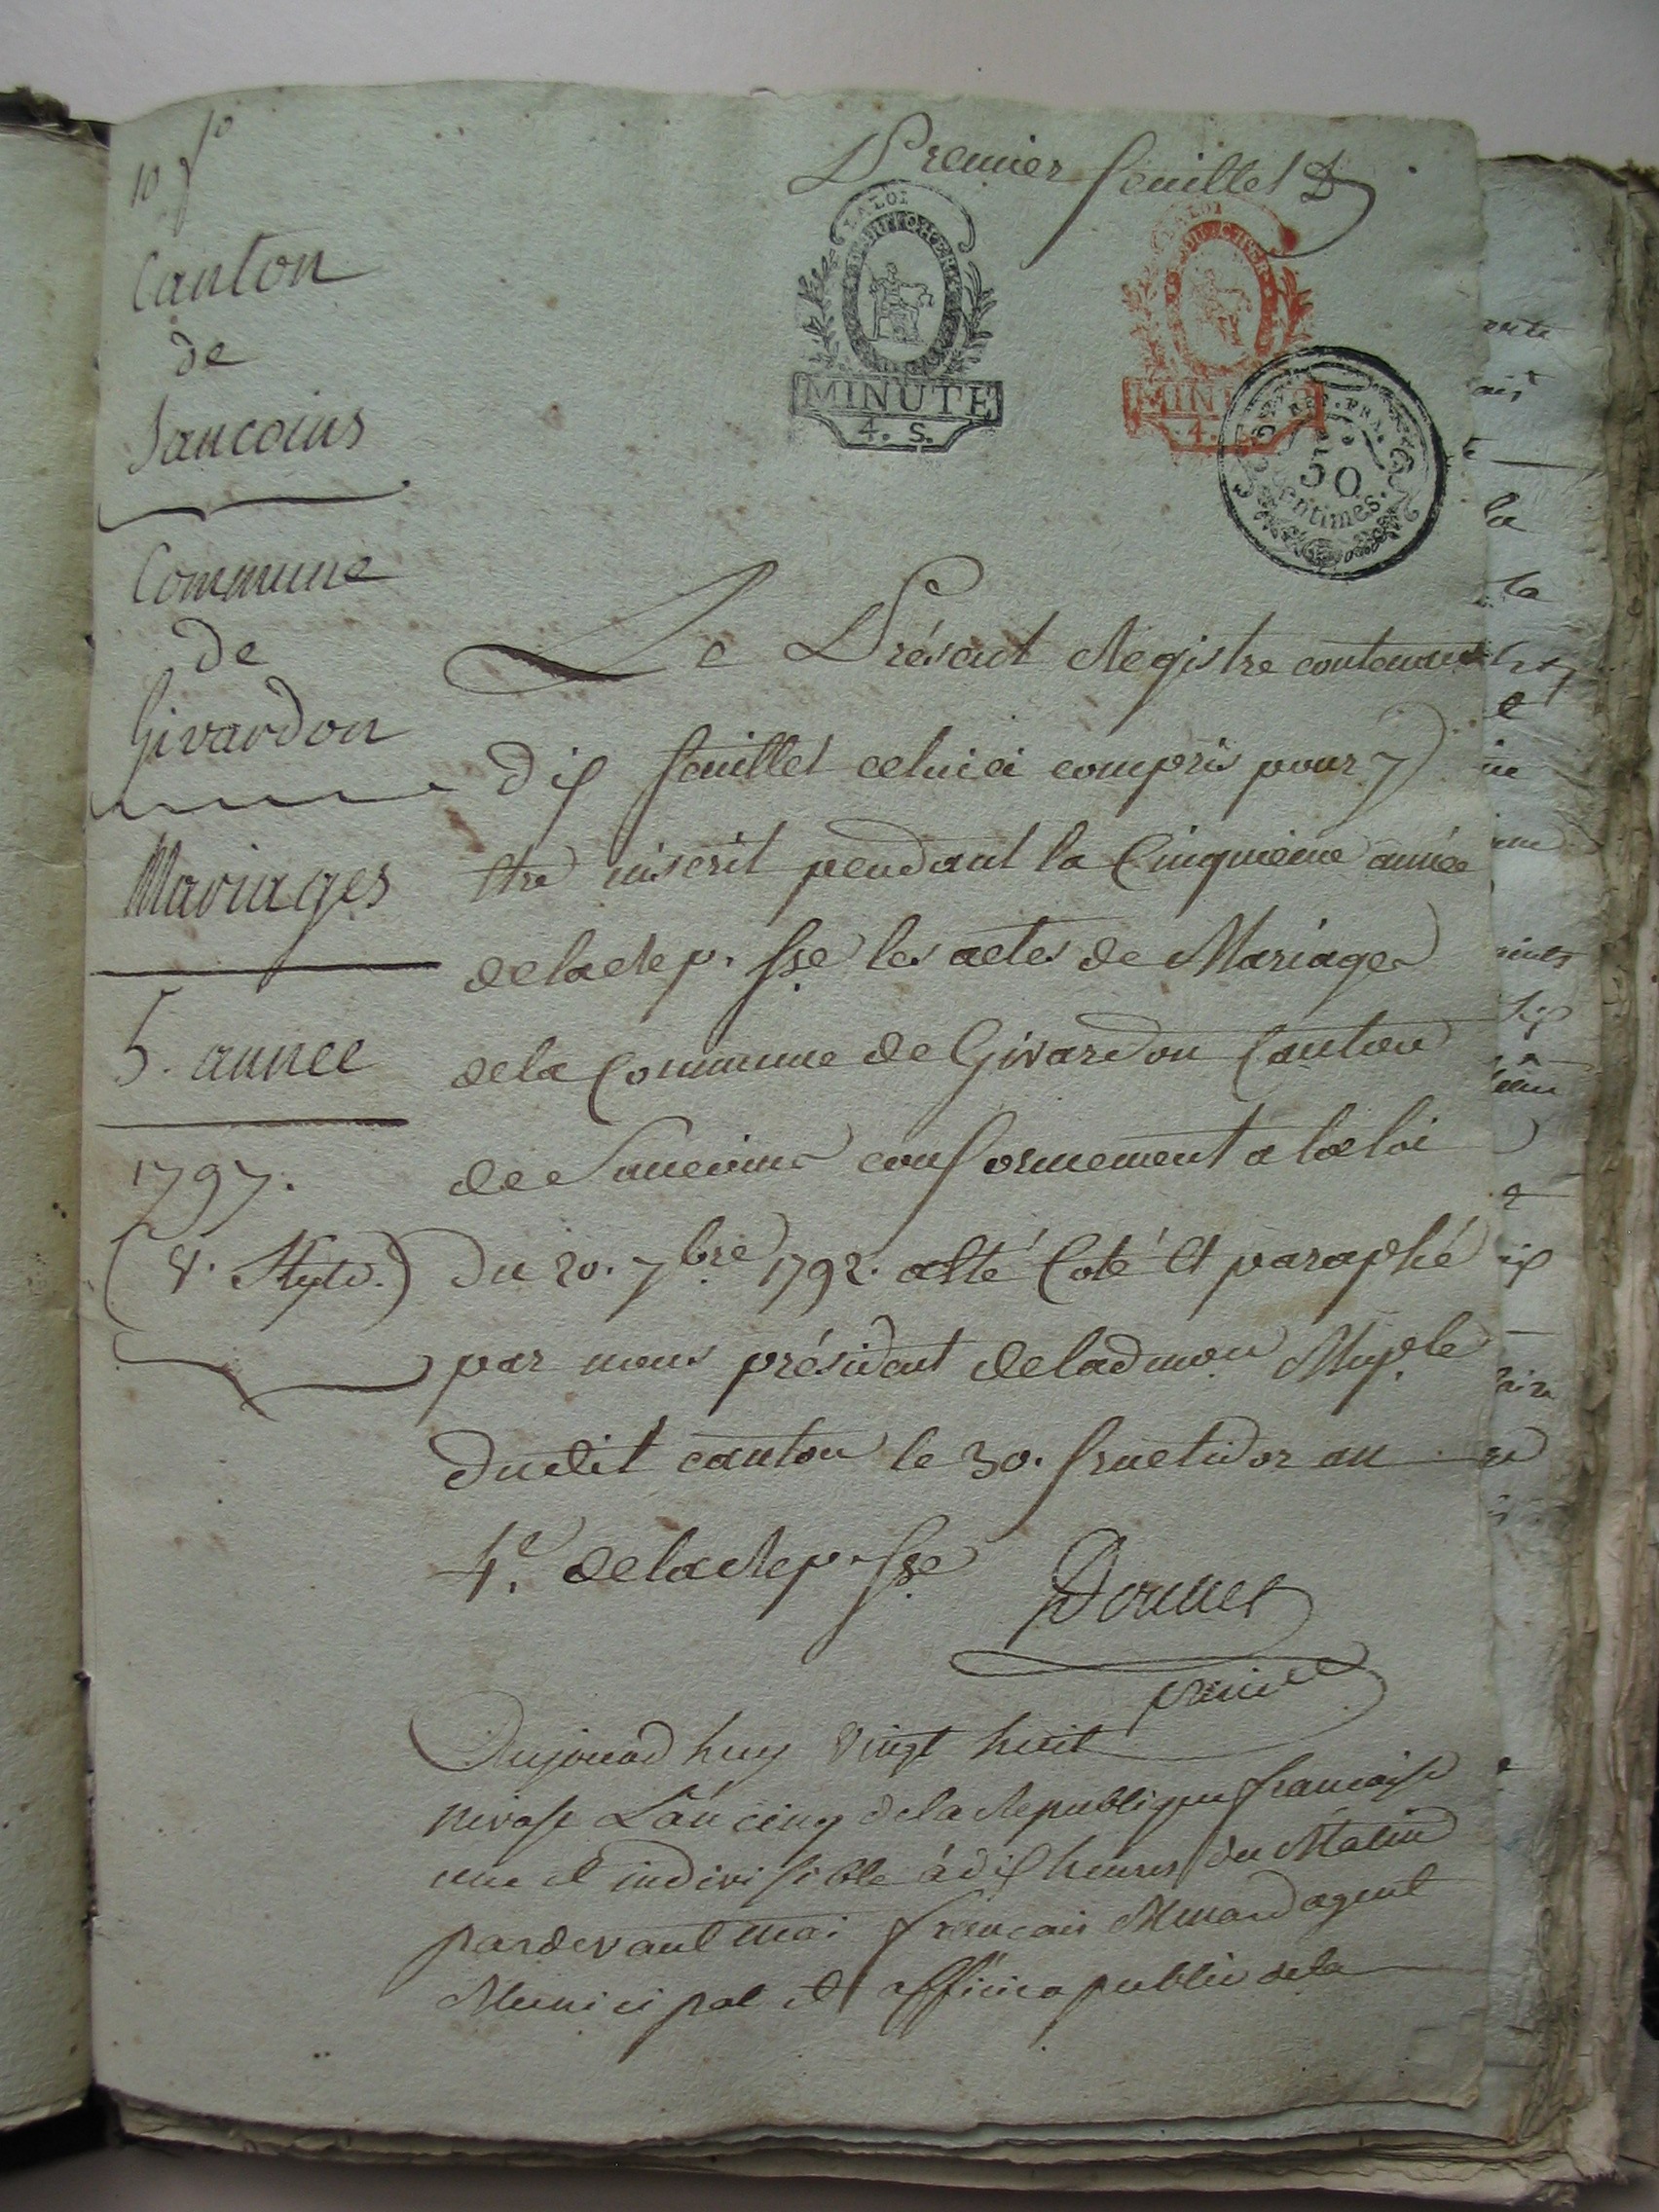 10 fo
Premier feuillet
LA LOI
DEP. DU CHER
MINUTE
4. S.
LA LOI
DU CHER
MIN
4.
REP. FRA.
50
centimes.
Canton
de
Sancoins
Commune
de
Givardon
Mariages
5. année
1797.
(V. Style.)
Le Présent Registre contenant
dix feuillet celui ci compris pour y
Etre inscrit pendant la Cinquieme année
de la Rep. fse les actes de Mariages
de la Commune de Givardon Canton
de Sancoins conformement a la loi
du 20. 7bre 1792. a Eté Coté Et paraphé
par nous président de ladmon Muple
dudit canton le 30. fructidor an
4e. de la Rep. fse
Aujourd huy vingt huit
nivose L'an cinq de la Republique francaise
une et indivisible à dix heures du Matin
pardevant moi francais Menard agent
Municipal et officie public de la